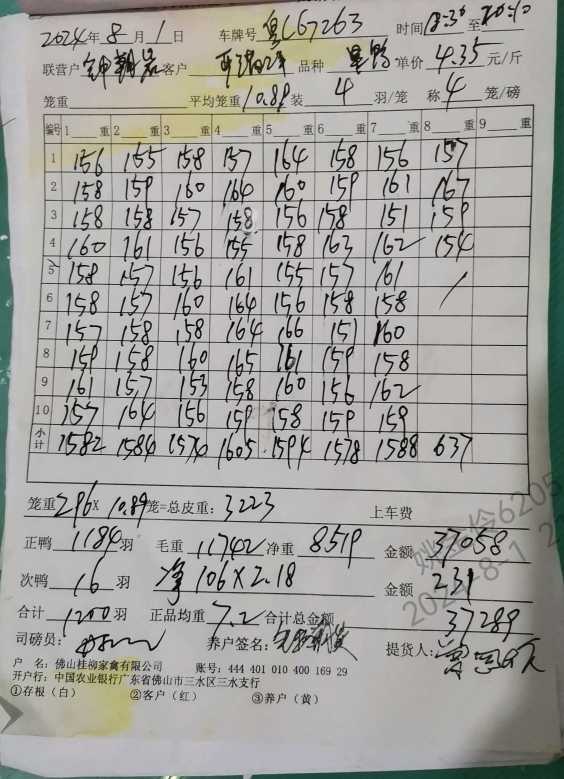 2024年8月1日 车牌号 粤C67263 时间 至
联营户 客户 品种 单价 4.35 元/斤
笼重 平均笼重 10.89 装 4 羽/笼 称 4 笼/磅
编号 1 重 2 重 3 重 4 重 5 重 6 重 7 重 8 重 9 重
1 156 155 158 157 164 158 156 157
2 158 159 160 164 160 159 161 167
3 158 158 157 158 156 158 151 159
4 160 161 156 155 158 163 162 154
5 158 157 156 161 155 157 161 /
6 158 157 160 164 156 158 158
7 157 158 158 164 166 151 160
8 159 158 160 165 161 159 158
9 161 157 153 158 160 156 162
10 157 164 156 159 158 159 159
小计 1582 1584 1574 1605 1594 1578 1588 637
笼重 296 × 10.89 笼=总皮重: 3223 上车费
正鸭 1184 羽 毛重 11742 净重 8519 金额 37058
次鸭 16 羽 净 106×2.18 金额 231
合计 1200 羽 正品均重 7.2 合计总金额 37289
司磅员: 养户签名: 提货人:
户 名: 佛山桂柳家禽有限公司 账号: 444 401 010 400 169 29
开户行: 中国农业银行广东省佛山市三水区三水支行
①存根（白） ②客户（红） ③养户（黄）